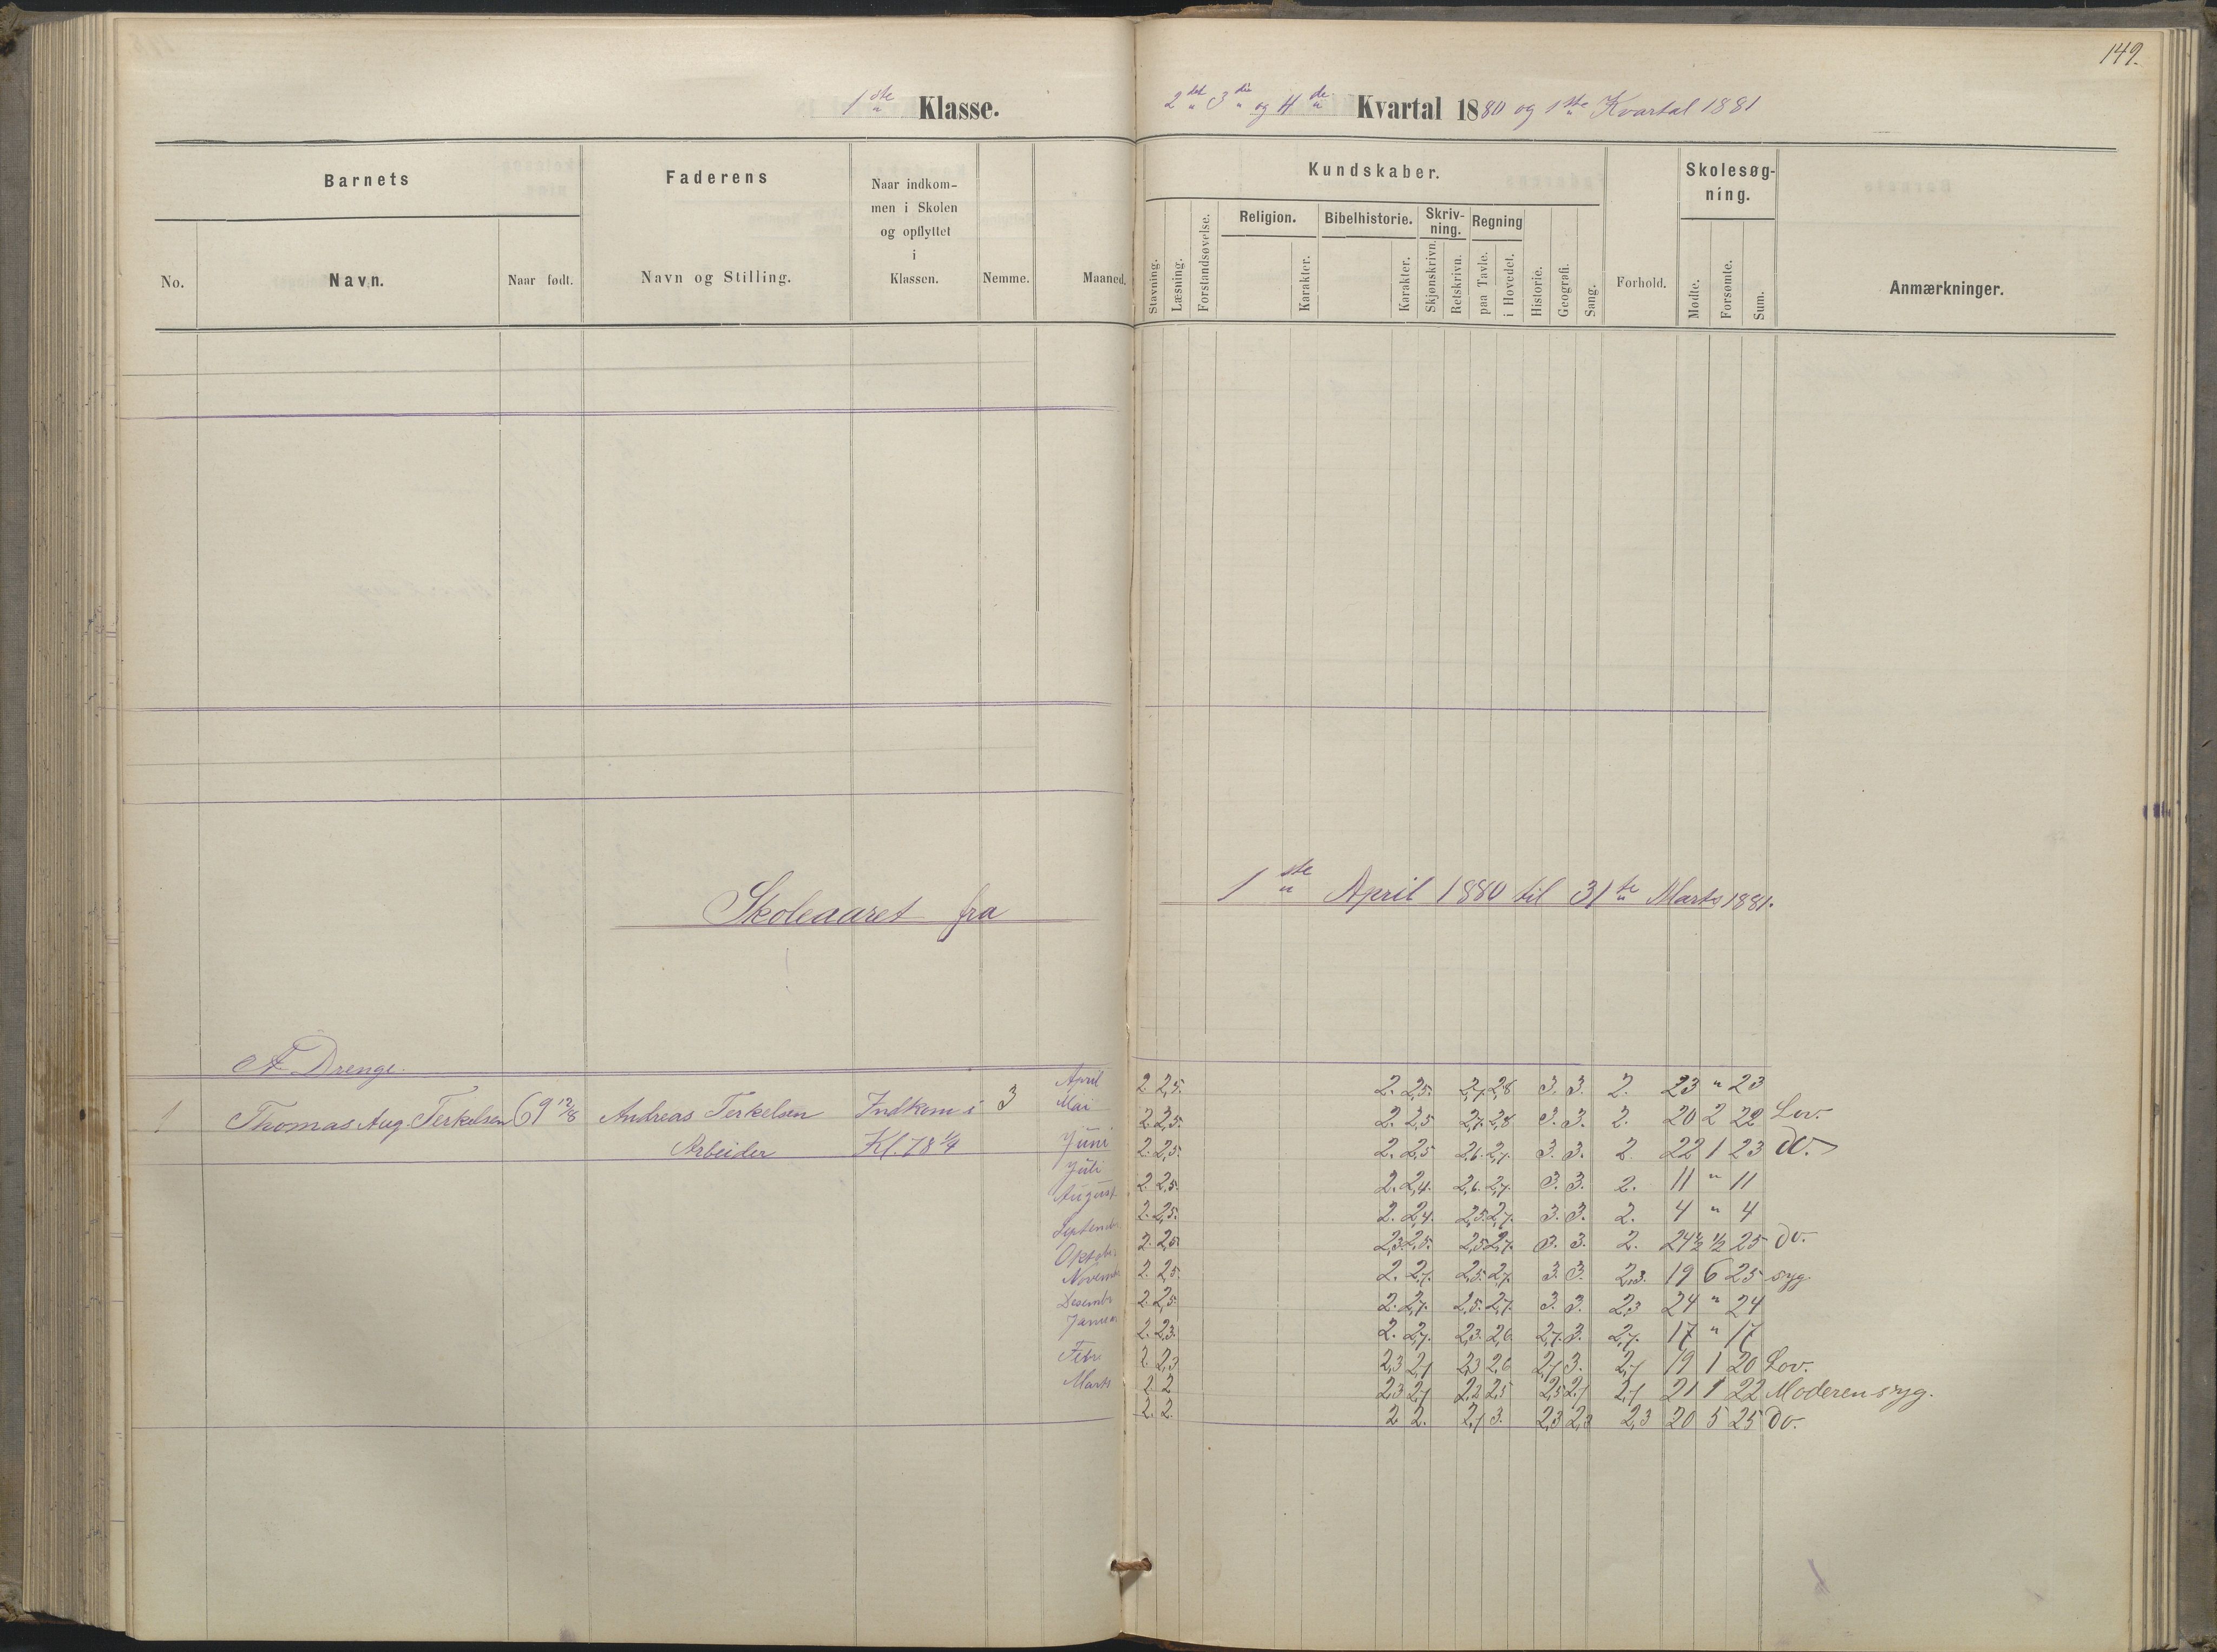 149.
1ste Klasse.
2det 3die og 4de Kvartal 1880 og 1ste Kvartal 1881
Barnets
Faderens
Naar indkom-
men i Skolen
og opflyttet
i
Klassen.
No.
Navn.
Naar født.
Navn og Stilling.
Nemme.
Maaned.
Kundskaber.
Skolesøg-
ning.
Religion.
Bibelhistorie.
Skriv-
ning.
Regning
Stavning.
Læsning.
Forstandsøvelse.
Karakter.
Karakter.
Skjønskrivn.
Retskrivn.
paa Tavle.
i Hovedet.
Historie.
Geografi.
Sang.
Forhold.
Mødte.
Forsømte.
Sum.
Anmærkninger.
Skoleaaret fra
1ste April 1880 til 31te Marts 1881.
A Drenge.
1 Thomas Aug. Terkelsen 69 12/8 Andreas Terkelsen Indkom i 3
Arbeider Kl. 78 1/4
April 2 2,5. 2. 2,5. 2,7. 2,8 3. 3. 2. 23 " 23
Mai 2. 2,5. 2. 2,5 2,7. 2,8 3. 3. 2. 20 2 22 Lov.
Juni 2. 2,5. 2. 2,5 2,6. 2,7. 3. 3. 2. 22 1 23 do.
Juli 2 2,5. 2. 2,4. 2,6. 2,7. 3. 3. 2. 11 " 11
August 2. 2,5. 2. 2,4. 2,5. 2,7. 3. 3. 2. 4 " 4
Septemb. 2. 2,5 2,3. 2,5. 2,5 2,7. 3. 3. 2. 24 1/2 1/2 25 do.
Oktobr. 2. 2,5 2. 2,7. 2,5. 2,7. 3. 3. 2,3. 19 6 25 syg
Novemb 2. 2,5. 2. 2,7. 2,5. 2,7. 3. 3. 2,3 24 " 24
Desembr 2. 2,3. 2. 2,7. 2,3. 2,6. 2,7. 3. 2,7. 17 " 17
Januar 2. 2,3 2,3 2,7 2,3 2,6 2,7 3. 2,7 19 1 20 Lov.
Febr 2 2 2,3 2,7 2,2 2,5 2,5 2,7 2,7 21 1 22 Moderen syg.
Marts 2. 2. 2 2. 2,7 3. 2,3 2,3 2,3 20 5 25 do.